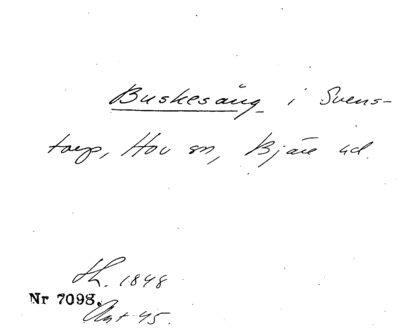 Buskesäng i Svens-
torp, Hov sn, Bjäre hd.
h. 1848
Nr 7098.
Akt 45.